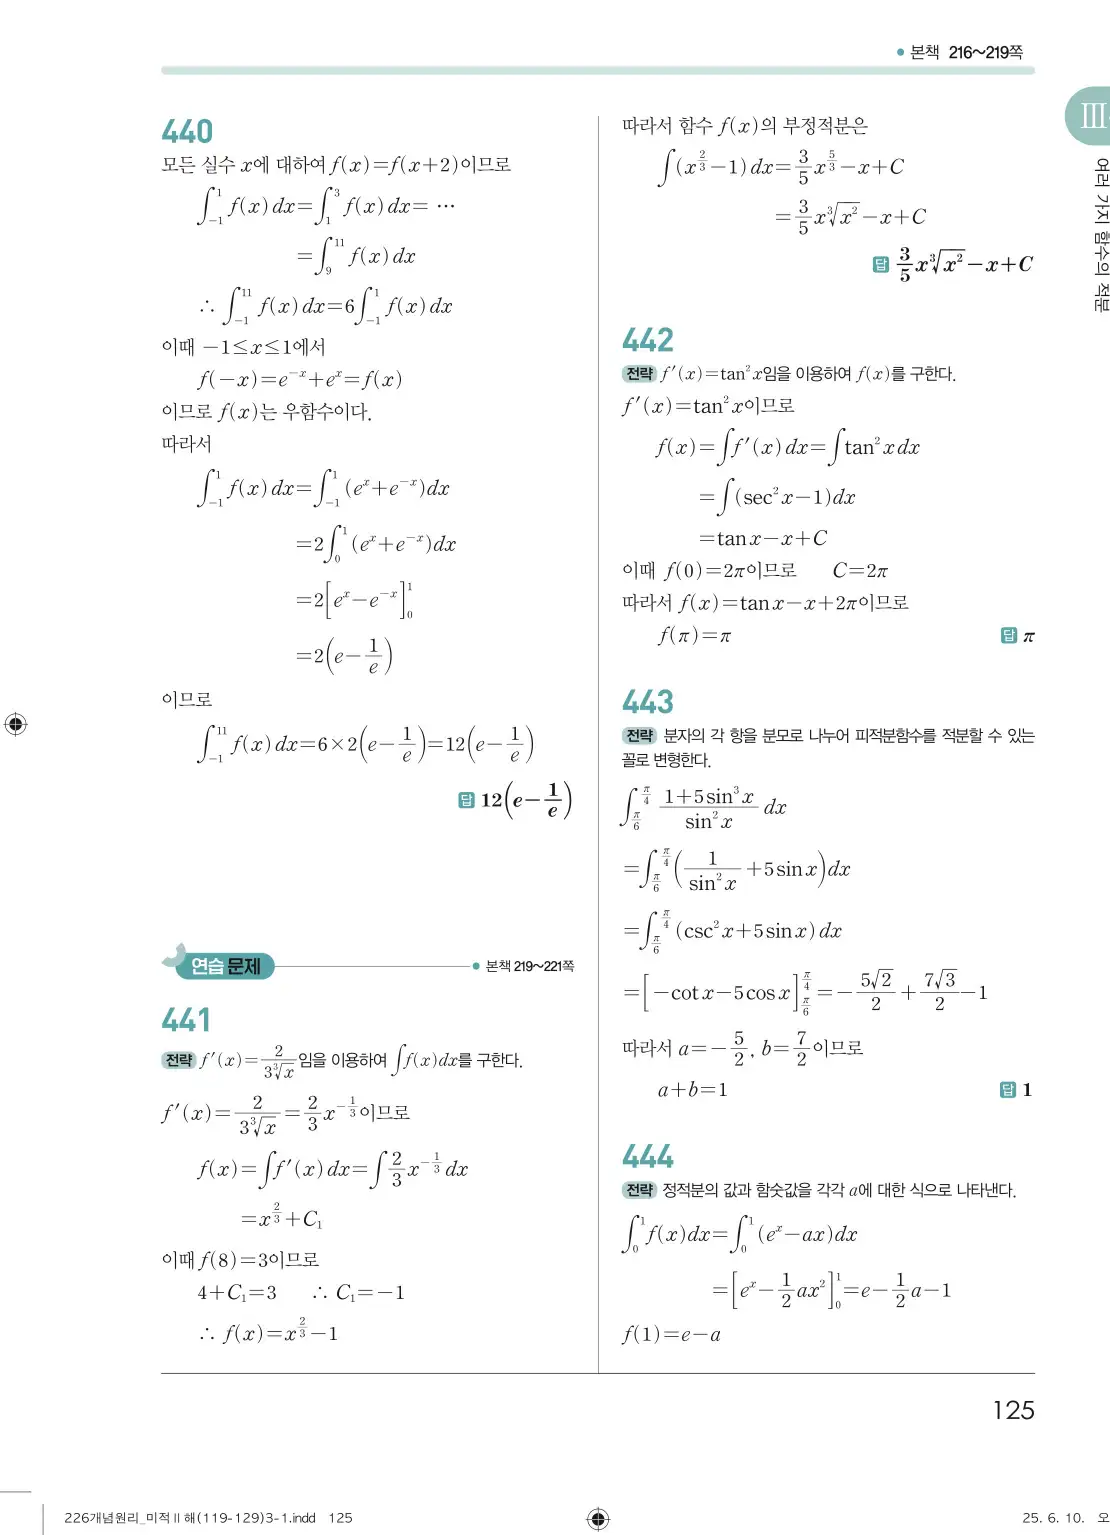 ● 본책 216~219쪽
440
모든 실수 x에 대하여 f(x)=f(x+2)이므로
∫_{-1}^{1} f(x)dx=∫_{1}^{3} f(x)dx= ⋯
=∫_{9}^{11} f(x)dx
∴ ∫_{-1}^{11} f(x)dx=6∫_{-1}^{1} f(x)dx
이때 −1≤x≤1에서
f(−x)=e^{-x}+e^{x}=f(x)
이므로 f(x)는 우함수이다.
따라서
∫_{-1}^{1} f(x)dx=∫_{-1}^{1} (e^{x}+e^{-x})dx
=2∫_{0}^{1} (e^{x}+e^{-x})dx
=2[e^{x}−e^{-x}]_{0}^{1}
=2(e−1/e)
이므로
∫_{-1}^{11} f(x)dx=6×2(e−1/e)=12(e−1/e)
답 12(e−1/e)
연습 문제 ● 본책 219~221쪽
441
전략 f′(x)=2/(3∛x)임을 이용하여 ∫f(x)dx를 구한다.
f′(x)=2/(3∛x)=2/3 x^{-1/3}이므로
f(x)=∫f′(x)dx=∫2/3 x^{-1/3}dx
=x^{2/3}+C₁
이때 f(8)=3이므로
4+C₁=3 ∴ C₁=−1
∴ f(x)=x^{2/3}−1
따라서 함수 f(x)의 부정적분은
∫(x^{2/3}−1)dx=3/5 x^{5/3}−x+C
=3/5 x∛x²−x+C
답 3/5 x∛x²−x+C
442
전략 f′(x)=tan²x임을 이용하여 f(x)를 구한다.
f′(x)=tan²x이므로
f(x)=∫f′(x)dx=∫tan²xdx
=∫(sec²x−1)dx
=tanx−x+C
이때 f(0)=2π이므로 C=2π
따라서 f(x)=tanx−x+2π이므로
f(π)=π 답 π
443
전략 분자의 각 항을 분모로 나누어 피적분함수를 적분할 수 있는
꼴로 변형한다.
∫_{π/6}^{π/4} (1+5sin³x)/(sin²x) dx
=∫_{π/6}^{π/4} (1/(sin²x)+5sinx)dx
=∫_{π/6}^{π/4} (csc²x+5sinx)dx
=[−cotx−5cosx]_{π/6}^{π/4}=−5√2/2+7√3/2−1
따라서 a=−5/2, b=7/2이므로
a+b=1 답 1
444
전략 정적분의 값과 함숫값을 각각 a에 대한 식으로 나타낸다.
∫_{0}^{1} f(x)dx=∫_{0}^{1} (e^{x}−ax)dx
=[e^{x}−1/2 ax²]_{0}^{1}=e−1/2 a−1
f(1)=e−a
Ⅲ
여러 가지 함수의 적분
125
226개념원리_미적Ⅱ해(119-129)3-1.indd 125
25. 6. 10.